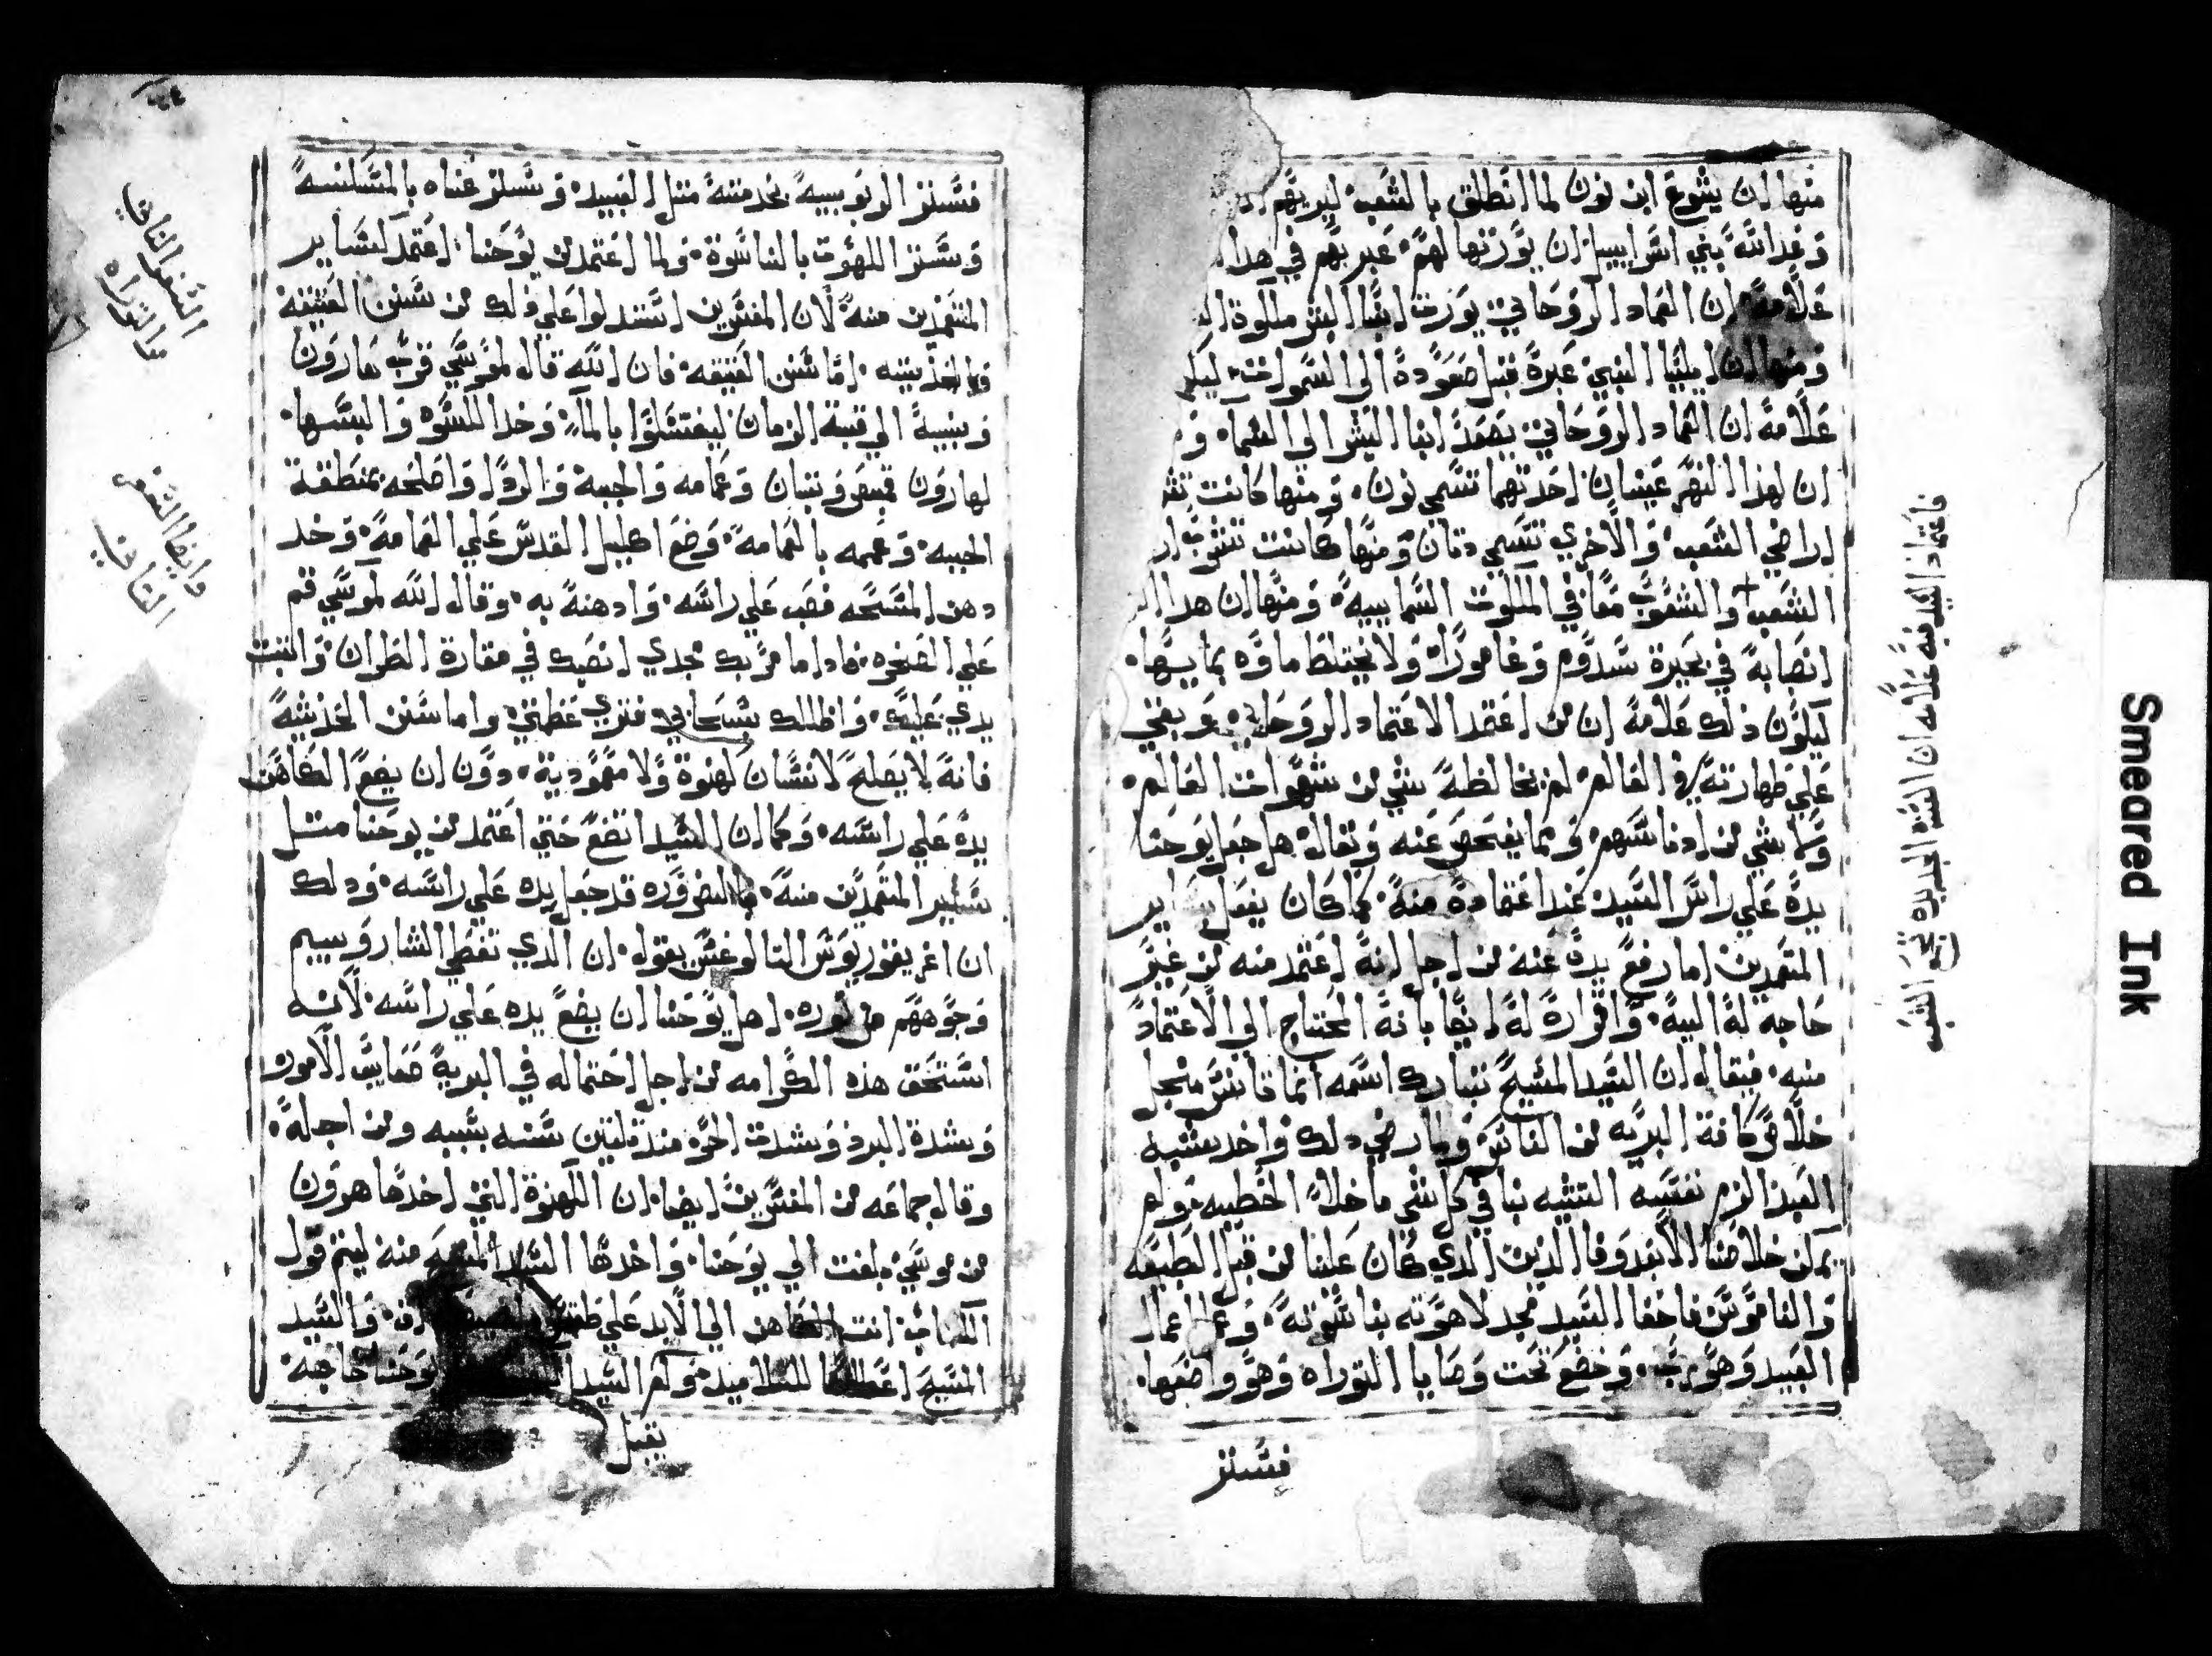 منها ان يشوع ابن نون لما انطلق بالشعب ليريهم
وعدالله بني اسراييل ان يورتها لهم عبر بهم في هدا
علامه ان العماد الروحاني يورت ابنا البشر ملكوة
ومنها ان ايليا النبي عبرة قبل صعوده الى السموات ليكن
علامة ان العماد الروحاني يصعد ابنا البشر الى السما و
ان لهذا النهر عينان احدتهما تسمى نون ومنها كانت تشرب
اراضي الشعب والاخري تسمي دنان ومنها كانت تشرب
الشعب والشعوب معا في الملكوت السماييه ومنها ان هدا
انصابه في بحيرة سدوم وغاموراه ولا يختلط ماوه بمايها
ليكون ذلك علامة ان من اعتمد الاعتماد الروحاني وبقي
على طهارته في العالم لم يخالطه شي من شهوات العالم
ولا شي من ادناسهم ومما يفحص عنه ويقال هل جعل يوحنا
يده علي راس السيد عند اعتماده منه كما كان يفعل بساير
المتعمدين اما رفع يده عنه من اجل انه اعتمد منه من غير
حاجه له اليه واقراره له ايضا بانه المحتاج الى الاعتماد
منه فيقال ان السيد المسيح تبارك اسمه انما تانس من اجل
خلاص كافة البريه من الناس ولما رضي دلك واخد بشبه
العبد الزم نفسه التشبه بنا في كل شي ما خلا الخطيه ولم
يمكن خلاصنا الا بعد وفا الدين الدي كان علينا من قبل الطبيعه
والناموس فاخفا السيد مجد لاهوته بناسوته وعمل اعمال
العبيد وهو رب وخضع تحت وصايا التوراه وهو واضعها
فستر
فاعتماد السيد فيه علامه ان السنه الجديده تجمع الشعب
٢٤
فستر الربوبيه بخدمته متل العبيد وستر غناه بالمسكنه
وستر اللاهوت بالناسوة ولما اعتمد من يوحنا اعتمد كساير
المتعمدين منه لان المفسرين استدلوا علي ذلك من سنن العتيقه
والحديثه اما سنن العتيقه فان الله قال لموسي قرب هارون
وبنيه الي قبة الزمان ليغتسلوا بالماء وخد الكسوه والبسها
لهارون قميص وتبان وعمامه والجبه والردا واصلحه بمنطقة
الجبه وعممه بالعمامه وضع اكليل القدس علي العمامة وخد
دهن المسحه فصب علي راسه وادهنه به وقال الله لموسي قم
علي الصخره فادا ما مر بك مجدي انصبك في مغارة الظران واتبت
يدي عليك واظلك بسحابي فتري عظمتي واما سنن الحديثه
فانه لا يصلح لانسان كهنوة ولا معمودية دون ان يضع الكاهن
يده علي راسه وكما ان السيد اتضع حتي اعتمد من يوحنا متل
ساير المتعمدين منه بالضروره قد جعل يده علي راسه ودلك
ان اغريغوريوس التالوغس يقول ان الدي تغطي الشاروبيم
وجوههم من نوره اهل يوحنا ان يضع يده علي راسه لانه
استحق هذه الكرامه من اجل احتماله في البرية مصايب الامور
وبشدة البرد وبشدت الحر مند تلتين سنه بسببه ومن اجله
وقال جماعه من المفسرين ايضا ان الكهنوة التي اخدها هرون
من موسي بلغت الي يوحنا واخدها السيد المسيح منه ليتم قول
الكتاب انت الكاهن الي الابد علي طقس ملشيصاداق والسيد
المسيح اعطاها للتلاميد ولم السيد يوحنا حاجته
يقبل
السفر التاني
من التوراه
وايضا السفر
التاني
Smeared Ink